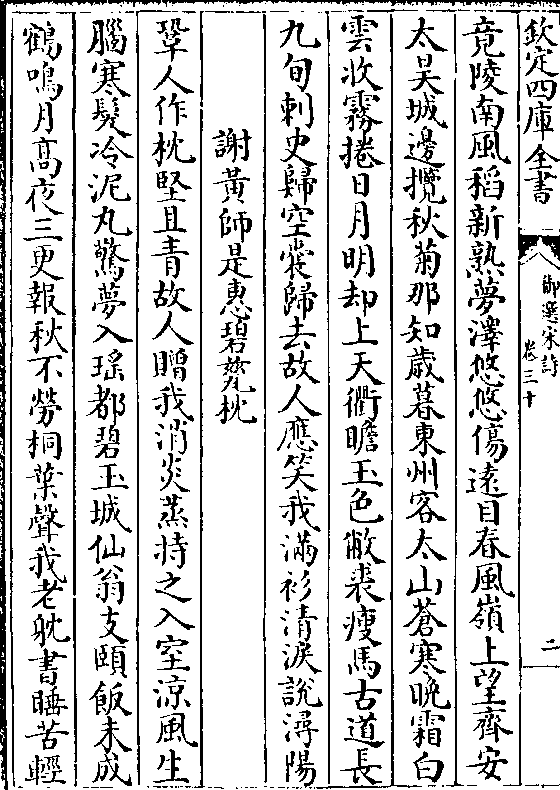 欽定四庫全書
御選宋詩
卷三十
二
竟陵南風稻新熟夢澤悠悠傷遠目春風嶺上望齊安
太昊城邊攬秋菊那知歲暮東州客太山蒼寒晚霜白
雲收霧捲日月明却上天衢瞻玉色敝裘瘦馬古道長
九旬刺史歸空裳歸去故人應笑我滿衫清淚說潯陽
謝黃師是惠碧瓷枕
鞏人作枕堅且青故人贈我消炎蒸持之入室涼風生
腦寒髮冷泥丸驚夢入瑤都碧玉城仙翁支頤飯未成
鶴鳴月高夜三更報秋不勞桐葉聲我老耽書睡苦輕